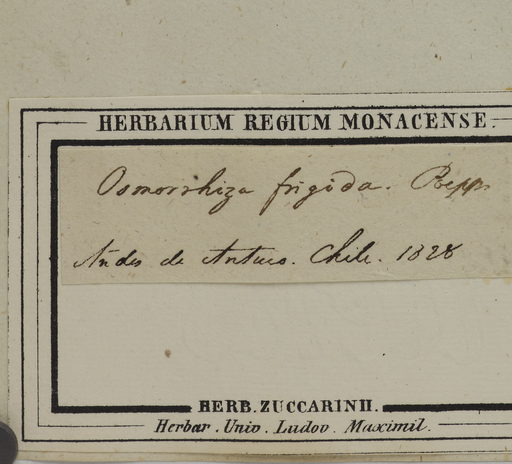 HERBARIUM REGIUM MONACENSE.
Osmorrhiza frigida. Poepp.
Andes de Antuco. Chile. 1828
HERB. ZUCCARINII.
Herbar. Univ. Ludov. Maximil.